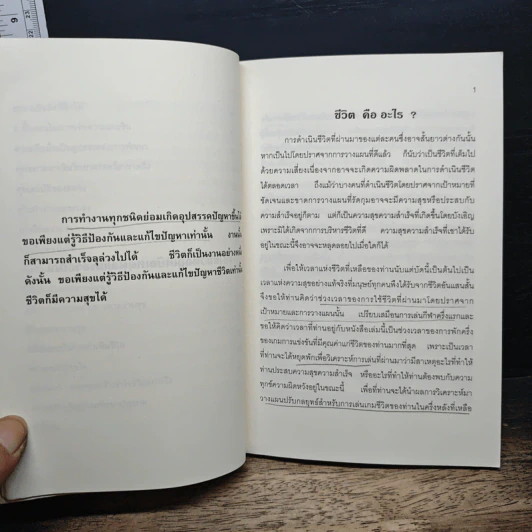 การทำงานทุกชนิดย่อมเกิดอุปสรรคปัญหาขึ้น
ขอเพียงแต่รู้วิธีป้องกันและแก้ไขปัญหาเท่านั้น งานนั้น
ก็สามารถสำเร็จลุล่วงไปได้ ชีวิตก็เป็นงานอย่างหนึ่ง
ดังนั้น ขอเพียงแต่รู้วิธีป้องกันและแก้ไขปัญหาชีวิตเท่านั้น
ชีวิตก็มีความสุขได้
1
ชีวิต คือ อะไร ?
การดำเนินชีวิตที่ผ่านมาของแต่ละคนซึ่งอาจสั้นยาวต่างกันนั้น
หากเป็นไปโดยปราศจากการวางแผนที่ดีแล้ว ก็นับว่าเป็นชีวิตที่เต็มไป
ด้วยความเสี่ยงเนื่องจากอาจจะเกิดความผิดพลาดในการดำเนินชีวิต
ได้ตลอดเวลา ถึงแม้ว่าบางคนที่ดำเนินชีวิตโดยปราศจากเป้าหมายที่
ชัดเจนและขาดการวางแผนที่รัดกุมอาจจะมีความสุขหรือประสบกับ
ความสำเร็จอยู่ก็ตาม แต่ก็เป็นความสุขความสำเร็จที่เกิดขึ้นโดยบังเอิญ
เพราะมิได้เกิดจากการบริหารชีวิตที่ดี ความสุขความสำเร็จที่เขาได้รับ
อยู่ในขณะนี้จึงอาจจะหลุดลอยไปเมื่อใดก็ได้
เพื่อให้เวลาแห่งชีวิตที่เหลือของท่านนับแต่บัดนี้เป็นต้นไปเป็น
เวลาแห่งความสุขอย่างแท้จริงที่มนุษย์ทุกคนพึงได้รับจากชีวิตอันแสนสั้น
จึงขอให้ท่านคิดว่าช่วงเวลาของการใช้ชีวิตที่ผ่านมาโดยปราศจาก
เป้าหมายและการวางแผนนั้น เปรียบเสมือนการเล่นกีฬาครึ่งแรกและ
ขอให้คิดว่าเวลาที่ท่านอยู่กับหนังสือเล่มนี้เป็นช่วงเวลาของการพักครึ่ง
ของเกมการแข่งขันที่มีคุณค่าแก่ชีวิตของท่านมากที่สุด เพราะเป็นเวลา
ที่ท่านจะได้หยุดพักเพื่อวิเคราะห์การเล่นที่ผ่านมาว่ามีสาเหตุอะไรที่ทำให้
ท่านประสบความสุขความสำเร็จ หรืออะไรที่ทำให้ท่านต้องพบกับความ
ทุกข์ความผิดหวังอยู่ในขณะนี้ เพื่อที่ท่านจะได้นำผลการวิเคราะห์มา
วางแผนปรับกลยุทธ์สำหรับการเล่นเกมชีวิตของท่านในครึ่งหลังที่เหลือ